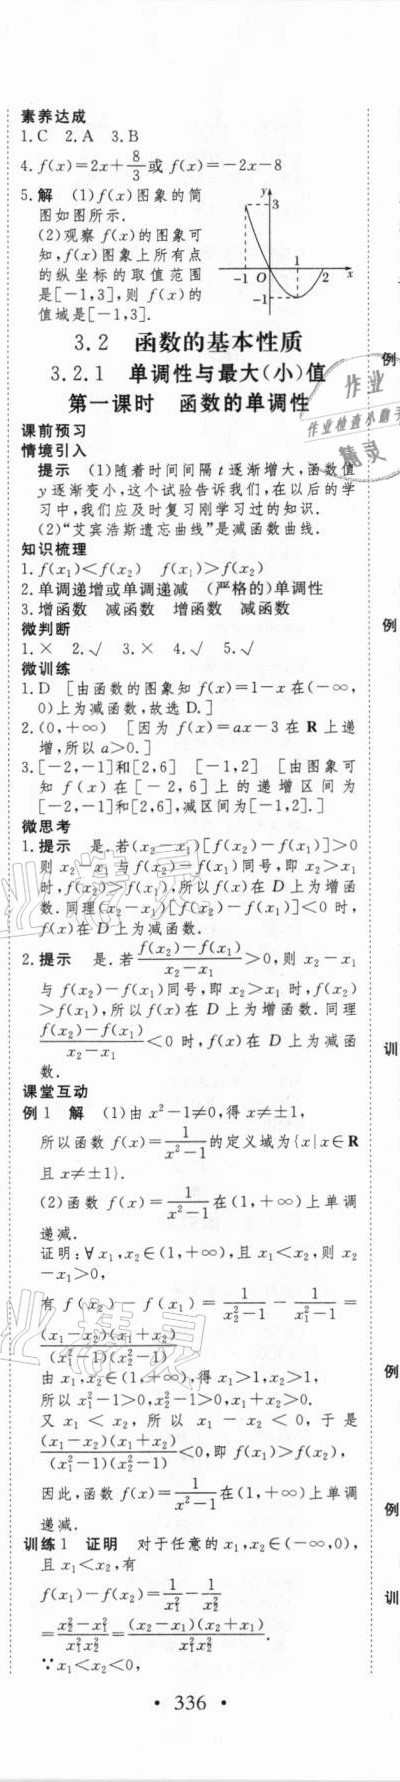 素养达成
1.C 2.A 3.B
4.f(x)=2x+8/3或 f(x)=-2x-8
5.解 (1)f(x)图象的简
图如图所示.
(2)观察 f(x)的图象可
知,f(x)图象上所有点
的纵坐标的取值范围
是[-1,3],则 f(x)的
值域是[-1,3].
y
3
-1 O 1 2 x
-1
3.2 函数的基本性质
3.2.1 单调性与最大(小)值
第一课时 函数的单调性
课前预习
情境引入
提示 (1)随着时间间隔 t 逐渐增大,函数值
y 逐渐变小,这个试验告诉我们,在以后的学
习中,我们应及时复习刚学习过的知识.
(2)“艾宾浩斯遗忘曲线”是减函数曲线.
知识梳理
1.f(x₁)<f(x₂) f(x₁)>f(x₂)
2.单调递增或单调递减 (严格的)单调性
3.增函数 减函数 增函数 减函数
微判断
1.× 2.√ 3.× 4.√ 5.√
微训练
1.D [由函数的图象知 f(x)=1-x 在(-∞,
0)上为减函数,故选 D.]
2.(0,+∞) [因为 f(x)=ax-3 在 R 上递
增,所以 a>0.]
3.[-2,-1]和[2,6] [-1,2] [由图象可
知 f(x)在[-2,6]上的递增区间为
[-2,-1]和[2,6],减区间为[-1,2].]
微思考
1.提示 是.若(x₂-x₁)[f(x₂)-f(x₁)]>0
则 x₂-x₁与 f(x₂)-f(x₁)同号,即 x₂>x₁
时,f(x₂)>f(x₁),所以 f(x)在 D 上为增函
数.同理(x₂-x₁)[f(x₂)-f(x₁)]<0 时,
f(x)在 D 上为减函数.
2.提示 是.若 (f(x₂)-f(x₁))/(x₂-x₁)>0,则 x₂-x₁
与 f(x₂)-f(x₁)同号,即 x₂>x₁ 时,f(x₂)
>f(x₁),所以 f(x)在 D 上为增函数.同理
(f(x₂)-f(x₁))/(x₂-x₁)<0 时,f(x)在 D 上为减函
数.
课堂互动
例 1 解 (1)由 x²-1≠0,得 x≠±1,
所以函数 f(x)=1/(x²-1)的定义域为{x|x∈R
且 x≠±1}.
(2)函数 f(x)=1/(x²-1)在(1,+∞)上单调
递减.
证明:∀x₁,x₂∈(1,+∞),且 x₁<x₂,则 x₂
-x₁>0,
有 f(x₂)-f(x₁)=1/(x₂²-1)-1/(x₁²-1)=
(x₁-x₂)(x₁+x₂)/((x₁²-1)(x₂²-1))
由 x₁,x₂∈(1,+∞),得 x₁>1,x₂>1,
所以 x₁²-1>0,x₂²-1>0,x₁+x₂>0.
又 x₁<x₂,所以 x₁-x₂<0,于是
(x₁-x₂)(x₁+x₂)/((x₁²-1)(x₂²-1))<0,即 f(x₁)>f(x₂),
因此,函数 f(x)=1/(x²-1)在(1,+∞)上单调
递减.
训练 1 证明 对于任意的 x₁,x₂∈(-∞,0),
且 x₁<x₂,有
f(x₁)-f(x₂)=1/x₁²-1/x₂²
=(x₂²-x₁²)/(x₁²x₂²)=(x₂-x₁)(x₂+x₁)/(x₁²x₂²).
∵x₁<x₂<0,
· 336 ·
例
例
训
例
例
训
作业
作业检查小助手
精灵
作业精灵
作业精灵